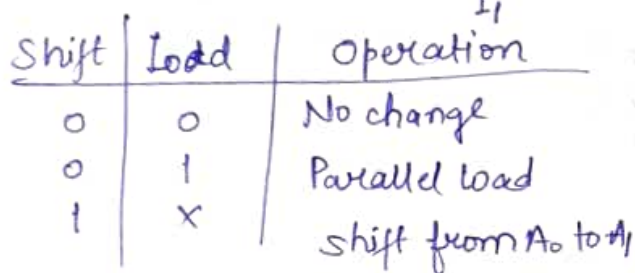 I1
Shift Load Operation
0 0 No change
0 1 Parallel load
1 X shift from A0 to A1